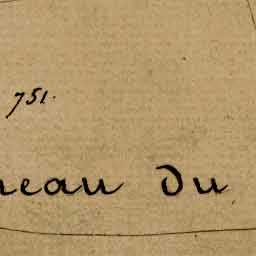 751.
neau du